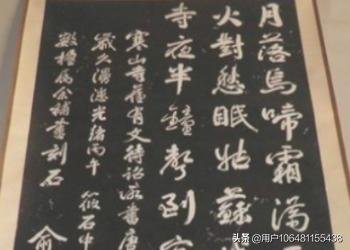 月落烏啼霜滿
火對愁眠姑蘇
寺夜半鐘聲到客
寒山寺舊有文待詔所書唐
歲久漫漶光緒丙午筱石中
數椽屬余補書刻石
俞
头条 @用户106481155438